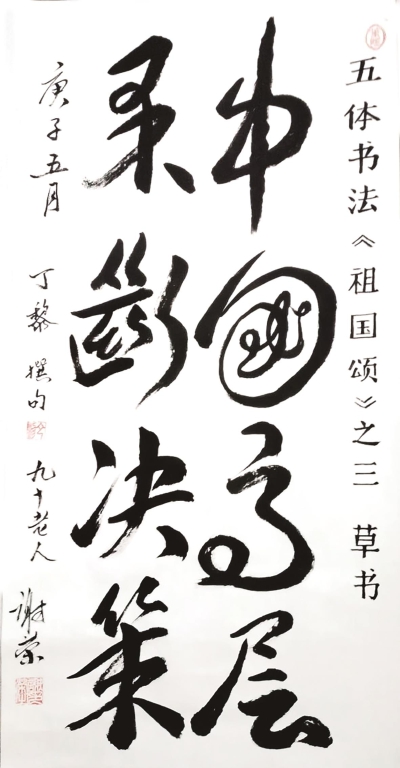 五体书法《祖国颂》之三 草书
中國高层
果斷决策
庚子五月 丁黎撰句 九十老人 谢荣